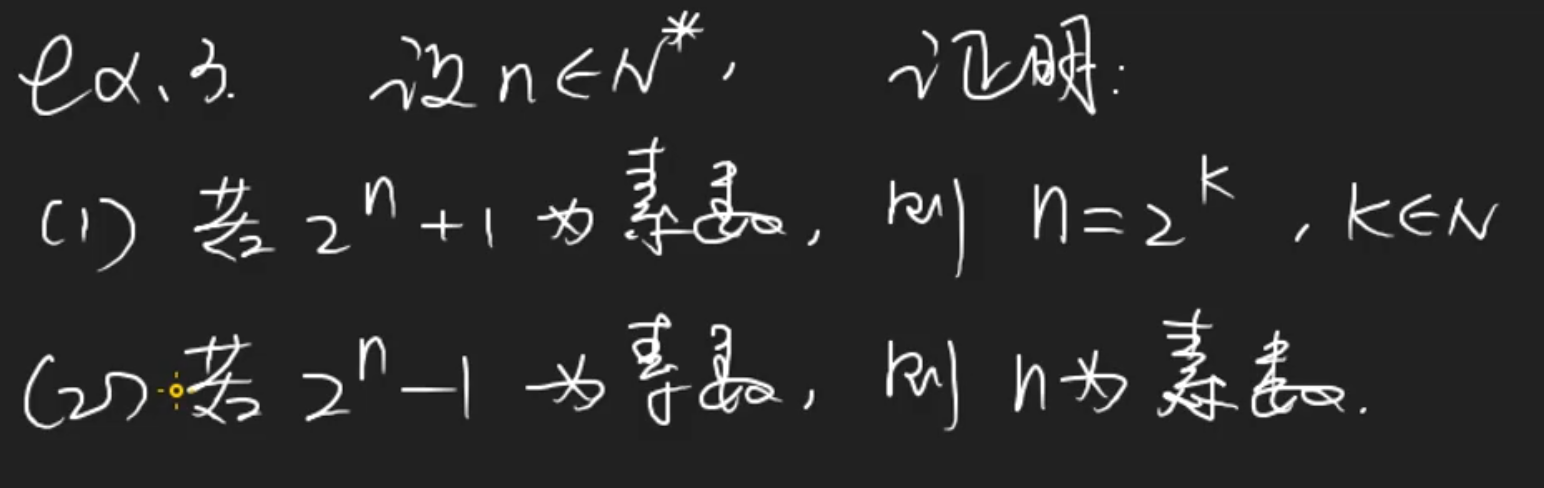 ex、3. 设 n∈N*, 证明:
(1) 若 2^n+1 为素数, 则 n=2^k, k∈N
(2) 若 2^n-1 为素数, 则 n为素数.